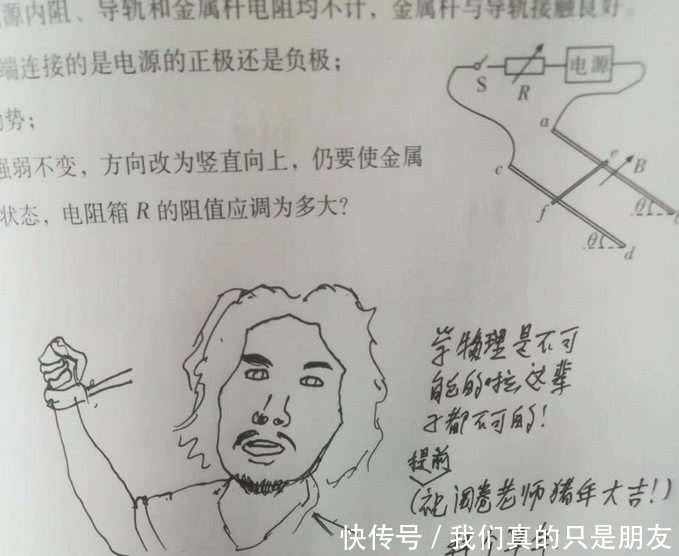 源内阻、导轨和金属杆电阻均不计，金属杆与导轨接触良好。
端连接的是电源的正极还是负极；
势；
强弱不变，方向改为竖直向上，仍要使金属
状态，电阻箱 R 的阻值应调为多大？
S
R
电源
a
e
B
c
f
θ
b
θ
d
学物理是不可
能的啦，这辈
子都不可能的！
提前
（祝阅卷老师猪年大吉！）
快传号 / 我们真的只是朋友